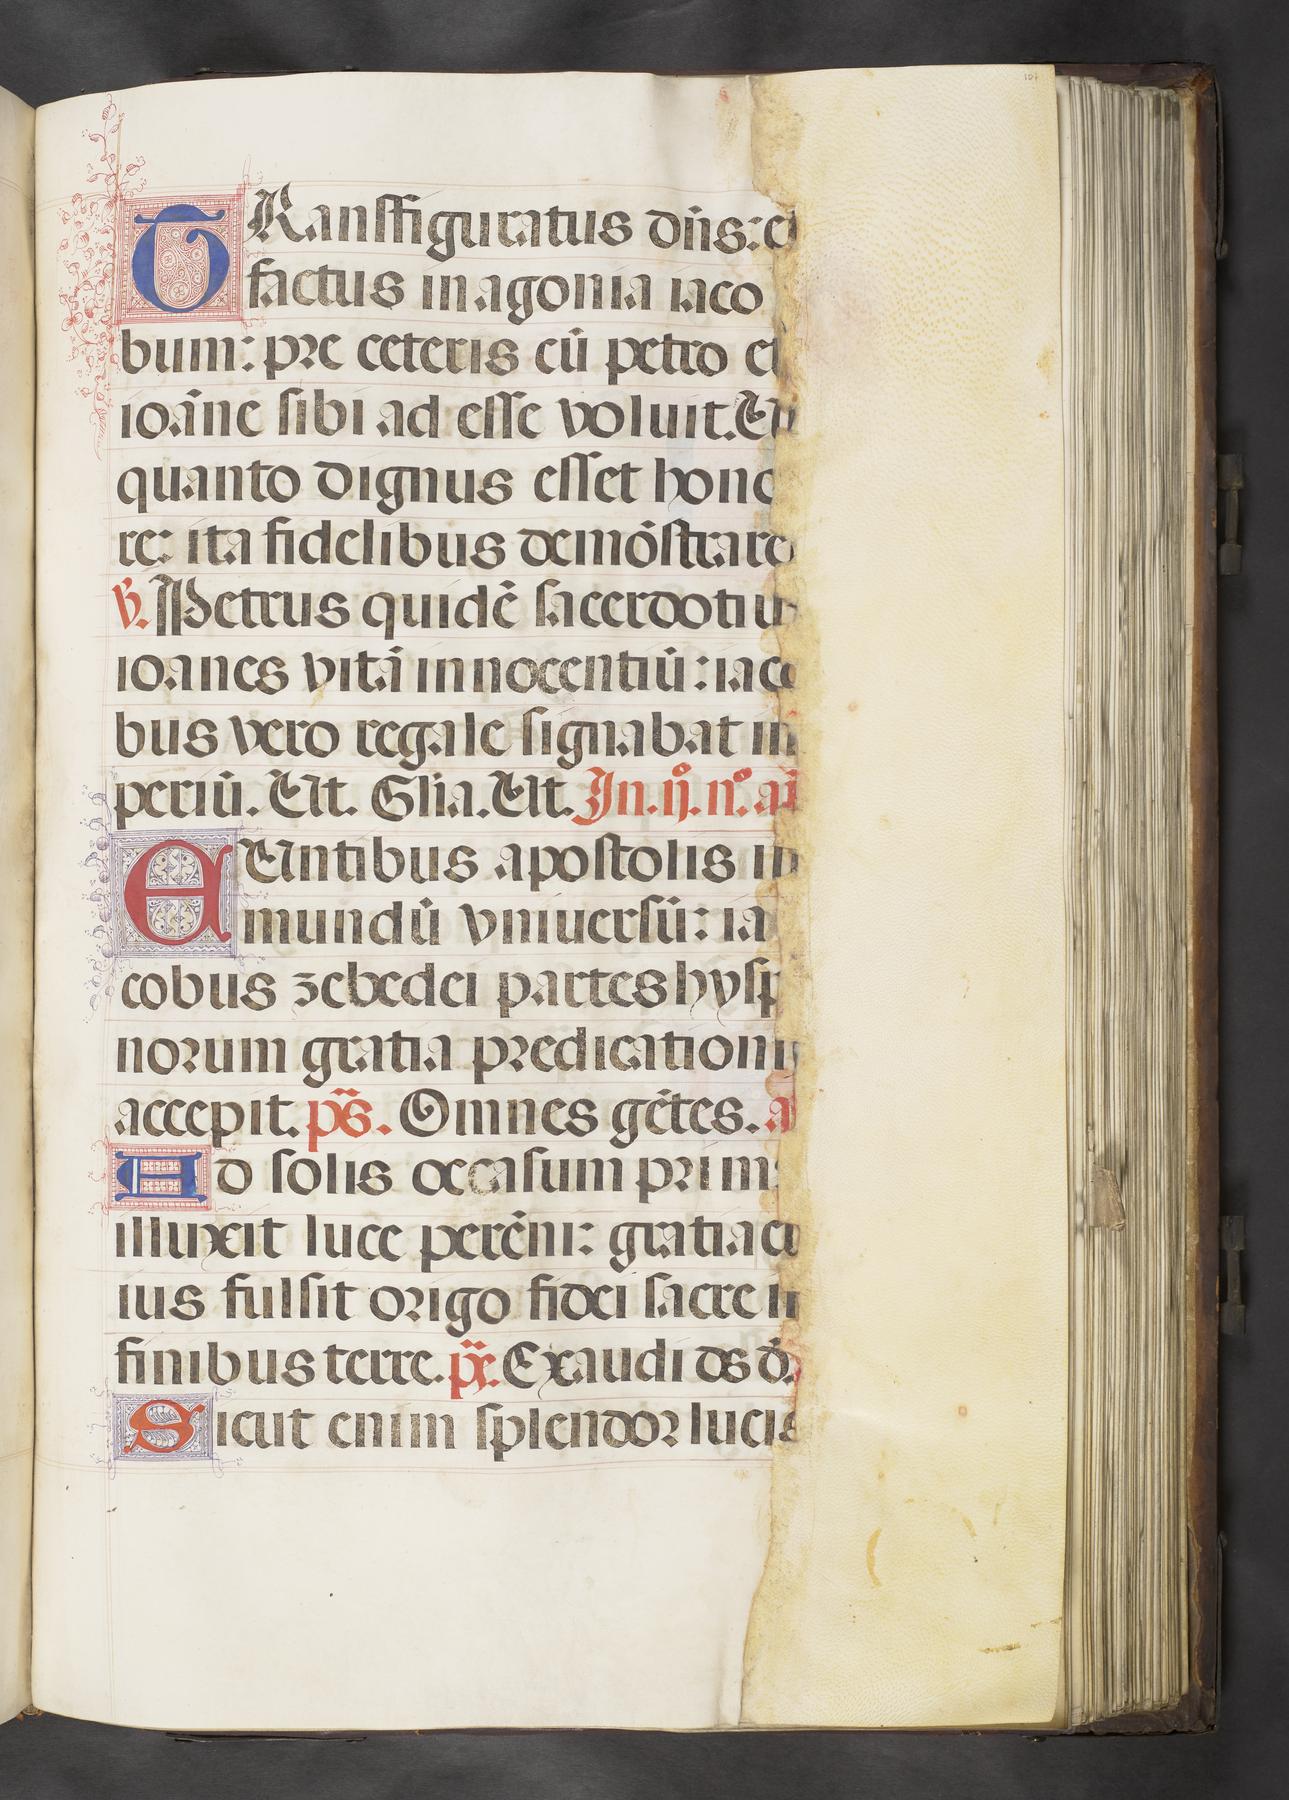 TRansfiguratus dn̄s: et
factus in agonia iaco
bum: pre ceteris cū petro et
ioāne sibi ad esse voluit. Ut
quanto dignus esset hono
re: ita fidelibus demōstraret
V. Petrus quidē sacerdotiū
ioanes vitā innocentiū: iaco
bus vero regale signabat im
periū. Ut. Glīa. Ut. In. ij. nº. añ
EUntibus apostolis in
mundū vniuersū: ia
cobus zebedei partes hysp
norum gratia predicationis
accepit. ps̄. Omnes gētes. a
AD solis occasum prim
illuxit luce perēni: gratia cu
ius fulsit origo fidei sacre in
finibus terre. ps̄. Exaudi ds̄ d.
Sicut enim splendor lucis